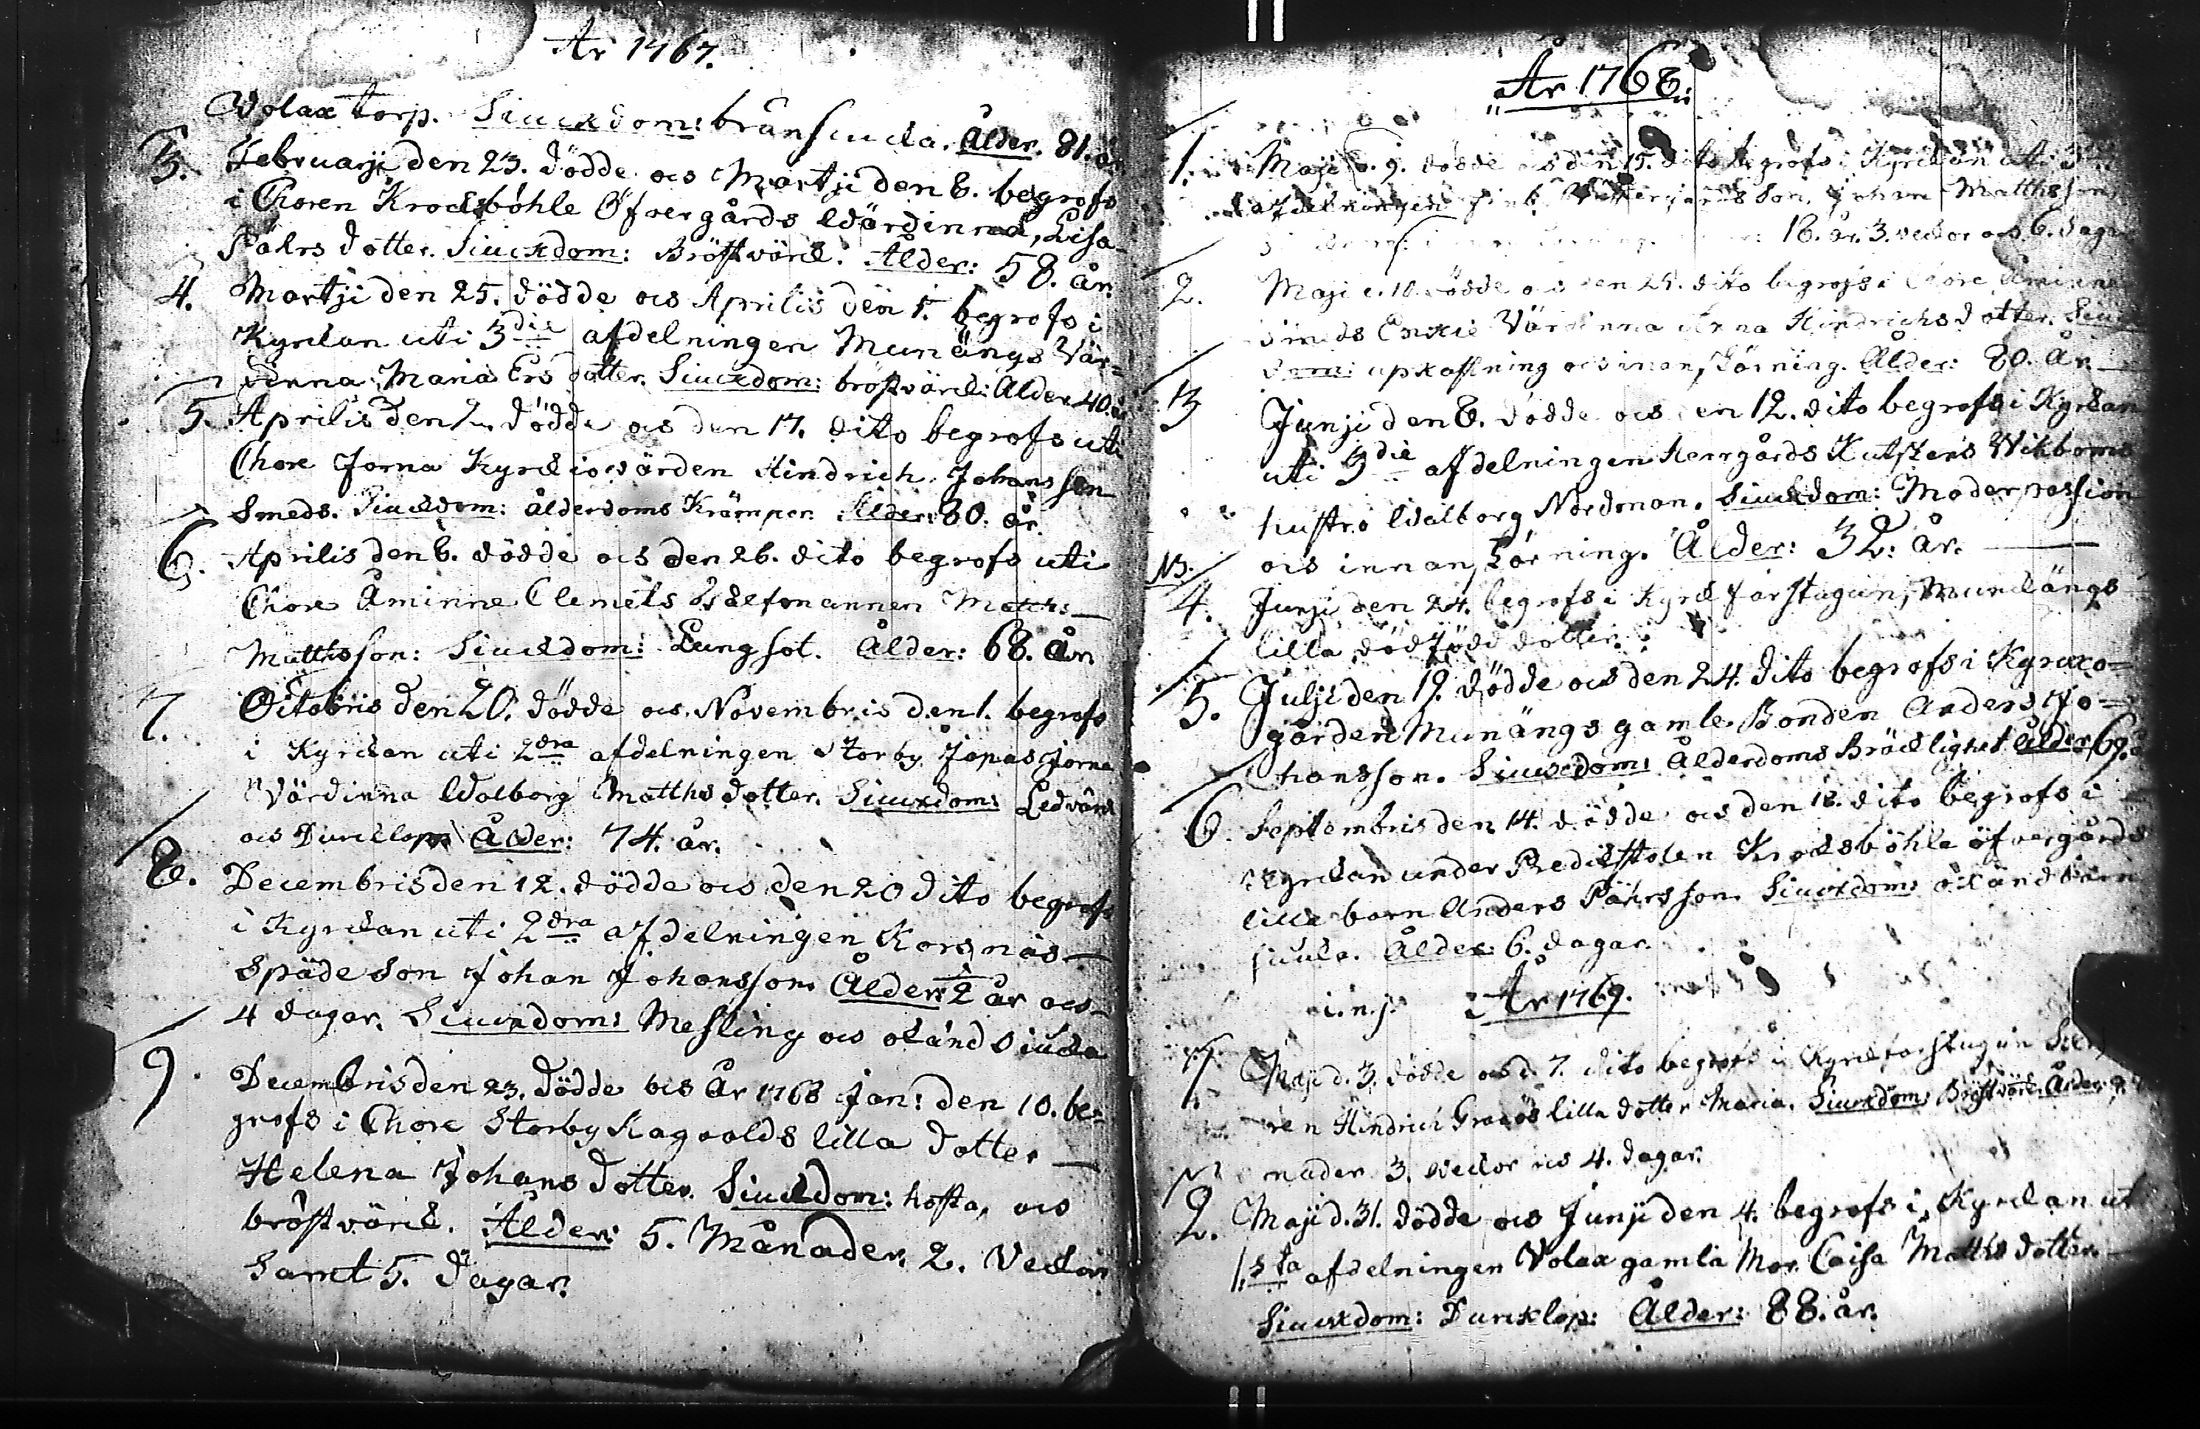 År 1767.
Wolax torp. Siuckdom: brånsiucka. Ålder. 81. år
3. Februarji den 23. dödde och Martji den 8. begrofs
i Choren Krocksböhle Öfvergårds Wärdinna, Lisa
Pährs dotter. Siuckdom: Bröstvärck. Ålder: 58. år.
4. Martji den 25. dödde och Aprilis den 5. begrofs i
Kyrckan uti 3die afdelningen Munängs Vär-
dinna Maria Ersdotter. Siuckdom: bröstvärck: Ålder 40. år
5. Aprilis den 7. dödde och den 17. dito begrofs uti
Chore Forna Kyrckiovärden Hindrich Johansson
Smeds. Siuckdom: ålderdoms Krämper. Ålder: 80. år
6. Aprilis den 8. dödde och den 26. dito begrofs uti
Chore Åminne Clemets Matths
Matthsson: Siuckdom: Lungsot. Ålder: 68. år.
7. Octobris den 20. dödde och Novembris den 1. begrofs
i Kyrckan uti 2dra afdelningen Storby Jopas forna
Värdinna Walborg Matthsdotter. Siuckdom: Ledvärck
och Durcklopp Ålder: 74. år.
8. Decembris den 12. dödde och den 20 dito begrofs
i Kyrckan uti 2dra afdelningen Korsnäs
späde son Johan Johansson. Ålder: 2 år och
4 dagar. Siuckdom: Messling och okänd siucka
9. Decembris den 23. dödde och År 1768 Jan: den 10. be-
grofs i Chore Storby Ragvalds lilla dotter
Helena Johans dotter. Siuckdom: hosta, och
bröstvärck. Ålder: 5. Månader. 2. Veckor
samt 5. dagar.
År 1768:
1. Maji d. 9. dödde och den 15. dito begrofs i Kyrckan uti 3
afdelningen son, Johan Matthsson,
18. år. 3. veckor och 6. dagar
2. Maji d. 10. dödde och den 24. dito begrofs i Chore Åminne
Smeds Enckie Värdinna Anna Hindrichsdotter. Siuck
dom: upkastning och innantörning. Ålder: 80. År.
3 Junji den 8. dödde och den 12. dito begrofs i Kyrckan
uti 3die afdelningen Herrgårds Kutskens Wikboms
hustro Walborg Nordman. Siuckdom: Moderpassion
och innantörning. Ålder: 32. år.
NB.
4. Junji den 24. begrofs i Kyrckfarstugun, Munckängs
lilla dödfödd dotter.
5. Julji den 19. dödde och den 24. dito begrofs i Kyrcko-
gården Munängs gamle Bonden Anders Jo-
hansson. Siuckdom: Ålderdoms Bräcklighet Ålder 69. å
6. Septembris den 14. dödde och den 18. dito begrofs i
Kyrckan under Predickstolen Krocksböhle öfvergårds
lilla barn Anders Pährsson. Siuckdom: okänd barn
siucka. Ålder: 6. dagar.
i.n.j. År 1769.
1. Maji d. 3. dödde och d. 7. dito begrofs i Kyrckfarstugun
ren Hindrich lilla dotter Maria. Siuckdom: Bröstvärck. Ålder: 9.
nader 3. veckor och 4. dagar.
2. Maji d. 31. dödde och Junji den 4. begrofs i Kyrckan ut
1sta afdelningen Wolax gamla Mor Caisa Matths dotter.
Siuckdom: Durcklop: Ålder: 88. år.